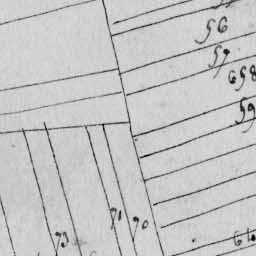 56
57
658
59
71
70
73